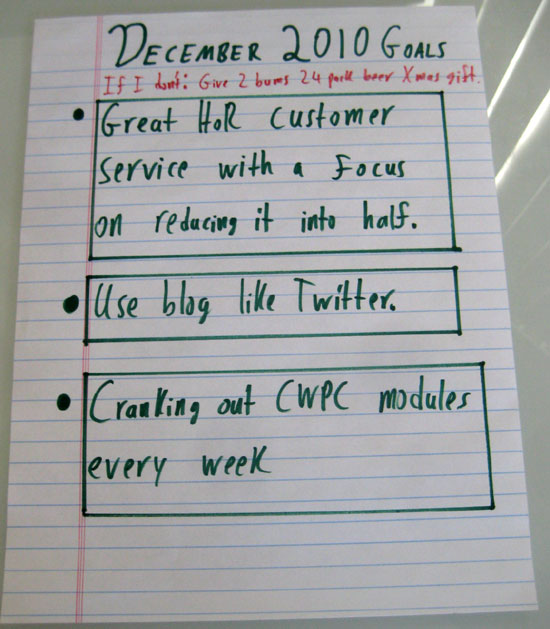 DECEMBER 2010 GOALS
If I don't: Give 2 bums 24 pack beer Xmas gift.
• Great HoR customer
service with a focus
on reducing it into half.
• Use blog like Twitter.
• Cranking out CWPC modules
every week